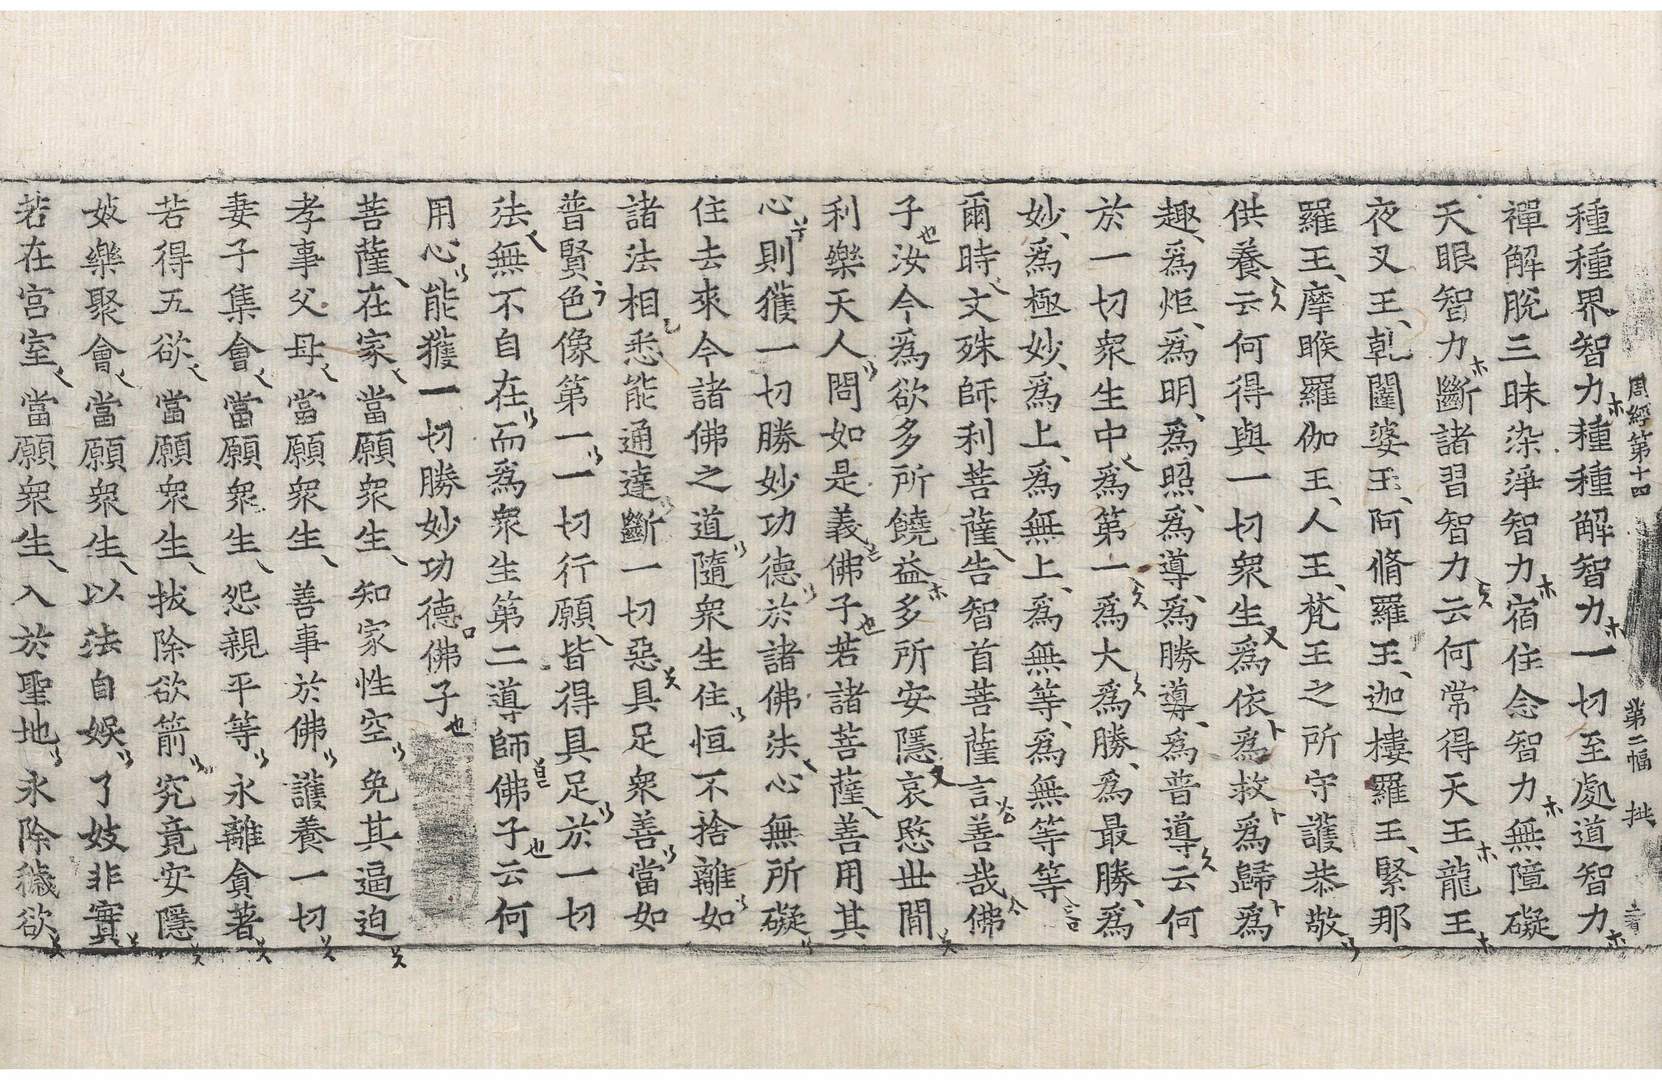 周經第十四 第二幅
種種界智力種種解智力一切至處道智力
禪解脫三昧染淨智力宿住念智力無障礙
天眼智力斷諸習智力云何常得天王龍王
夜叉王乾闥婆王阿脩羅王迦樓羅王緊那
羅王摩睺羅伽王人王梵王之所守護恭敬
供養云何得與一切衆生爲依爲救爲歸爲
趣爲炬爲明爲照爲導爲勝導爲普導云何
於一切衆生中爲第一爲大爲勝爲最勝爲
妙爲極妙爲上爲無上爲無等爲無等等
爾時文殊師利菩薩告智首菩薩言善哉佛
子汝今爲欲多所饒益多所安隱哀愍世間
利樂天人問如是義佛子若諸菩薩善用其
心則獲一切勝妙功德於諸佛法心無所礙
住去來今諸佛之道隨衆生住恒不捨離如
諸法相悉能通達斷一切惡具足衆善當如
普賢色像第一一切行願皆得具足於一切
法無不自在而爲衆生第二導師佛子云何
用心能獲一切勝妙功德佛子
菩薩在家當願衆生知家性空免其逼迫
孝事父母當願衆生善事於佛護養一切
妻子集會當願衆生怨親平等永離貪著
若得五欲當願衆生拔除欲箭究竟安隱
妓樂聚會當願衆生以法自娛了妓非實
若在宮室當願衆生入於聖地永除穢欲